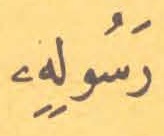 رَسُولِهِۦ